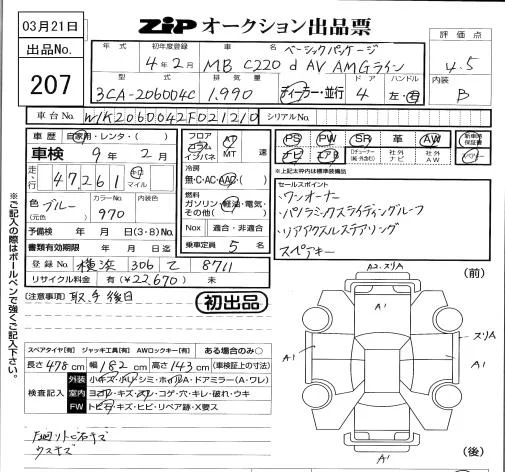 03月21日
ZiP オークション出品票
出品No.
207
年式 初年度登録 車名 ベーシックパッケージ
4年2月 MB C220 d AV AMGライン
型式 排気量 ドア ハンドル
3CA-206004C 1,990 ディーラー・並行 4 左・右
評価点
4.5
内装
B
車台No. W1K2060042F021210 シリアルNo.
車歴 自家用・レンタ・
車検 9年2月
走行 47,261 キロ マイル
色 ブルー カラーNo. 970 内装色
(元色)
予備検 年 月 日(3・8)No.
書類有効期限 年 月 日迄
登録No. 横浜 306 8711
リサイクル料金 有(¥22,670) 未
フロア AT
コラム
インパネ MT 速
冷房
無・C・AC・AAC・( )
燃料
ガソリン・軽油・電気・
その他( )
Nox 適合・非適合
乗車定員 5 名
PS PW SR 革 AW 新車時保証書
ナビ エアB 社外ナビ 社外AW
※上記太枠内は標準装備品
セールスポイント
・ワンオーナー
・パノラミックスライディングルーフ
・リアアクスルステアリング
スペアキー
※ご記入の際はボールペンで強くご記入下さい。
[注意事項] 取、手 後日
初出品
スペアタイヤ[有] ジャッキ工具[有] AWロックキー[有] ある場合のみ〇
長さ 478 cm 幅 182 cm 高さ 143 cm (車検証上の寸法)
検査記入
外装 小キズ・小凹・シミ・ホイルA・ドアミラー(A・ワレ)
室内 ヨゴレ・キズ・スレ・コゲ・穴・キレ・破れ・ウキ
FW トビ石・キズ・ヒビ・リペア跡・X要ス
ウスキズ
(前)
A2.スリA
A'
A1
A'
スリA
A1
A'
(後)